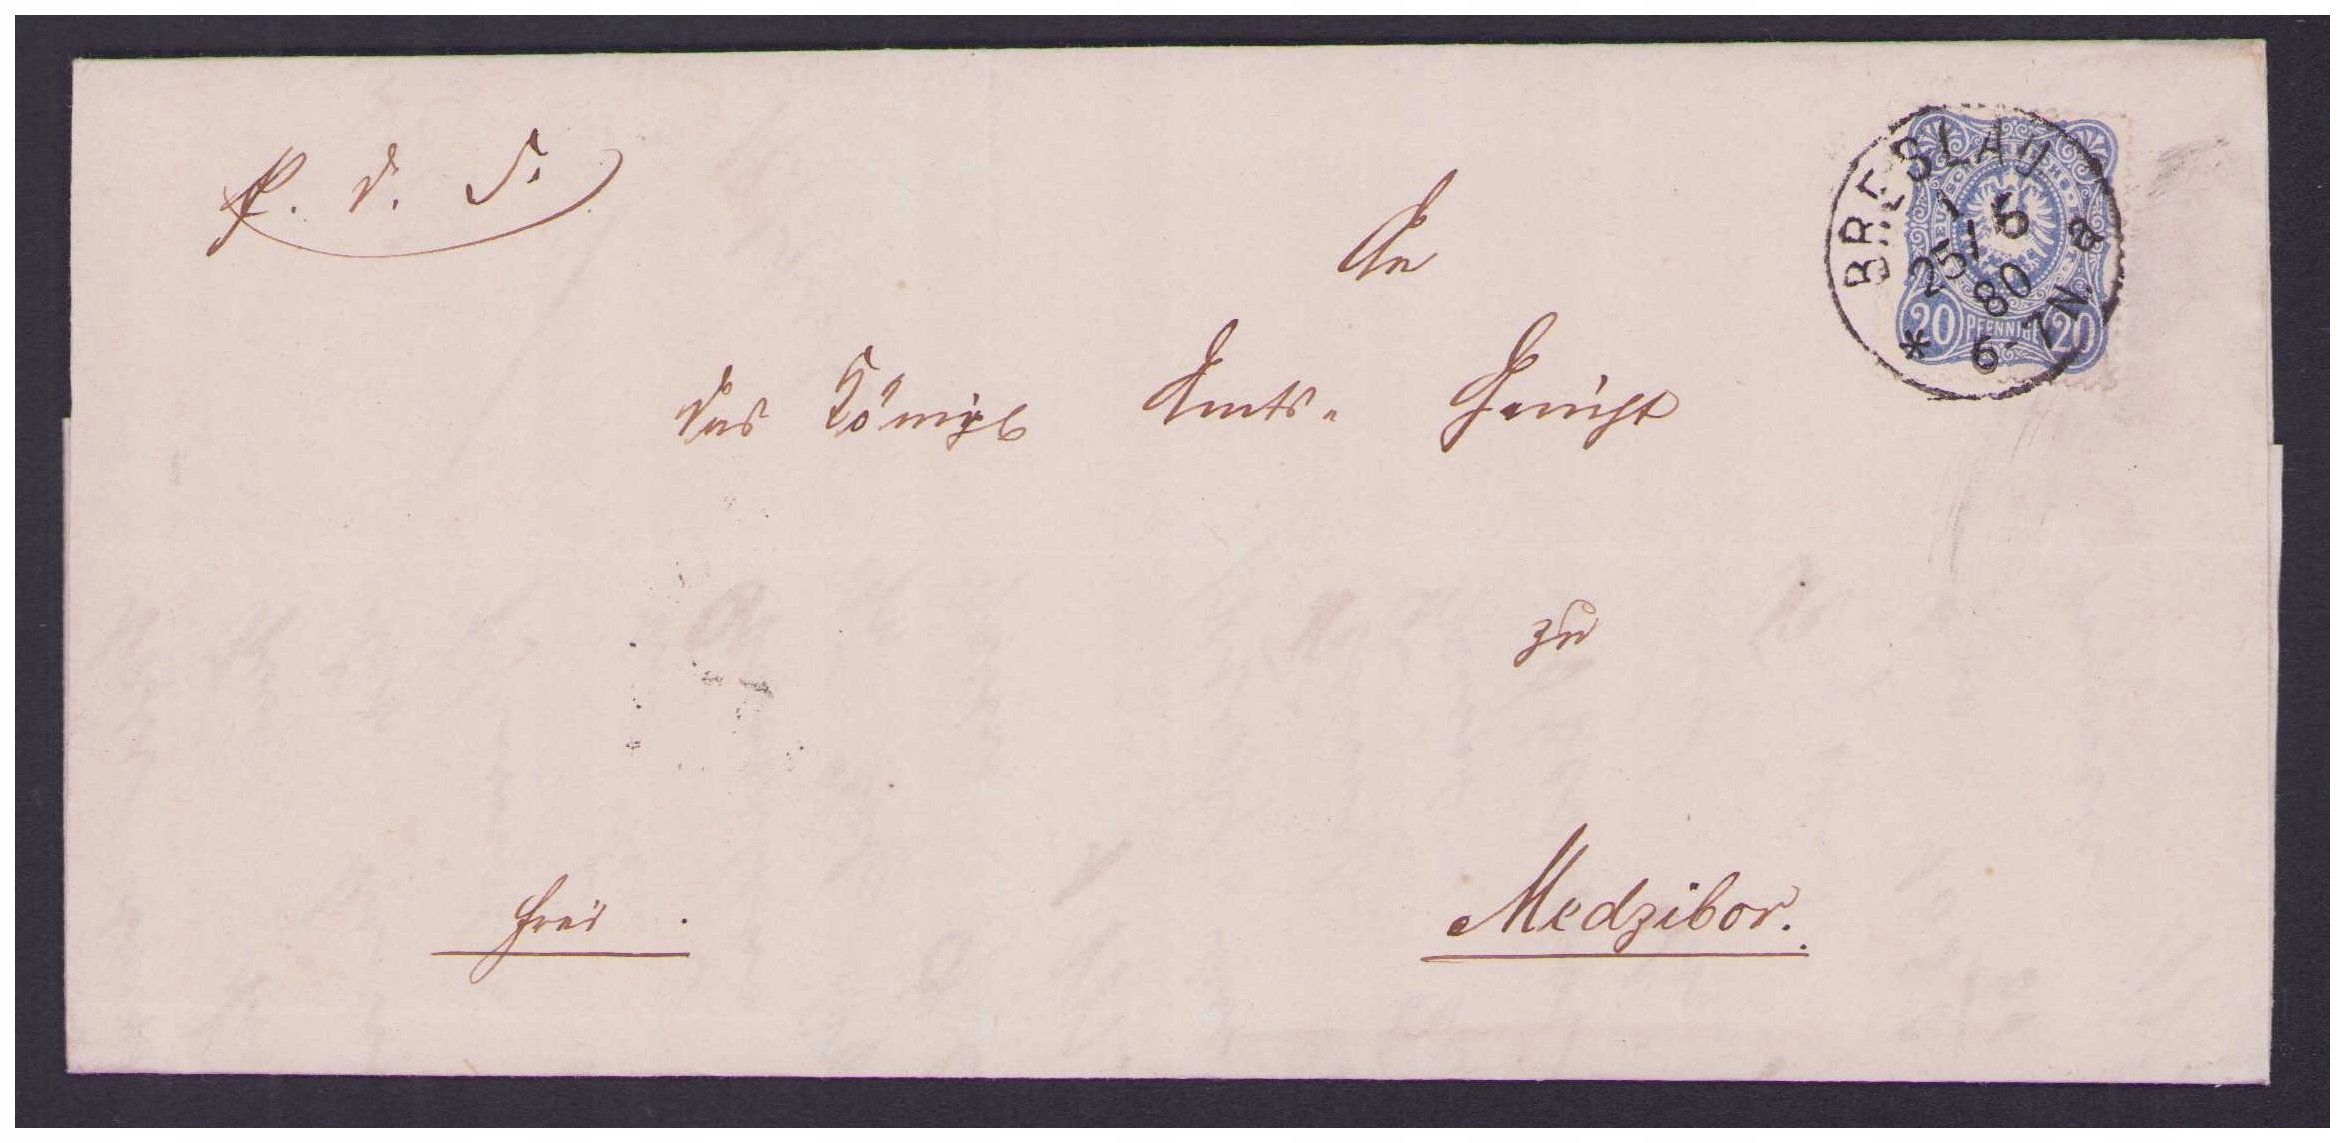 P. d. S.
BRESLAU
1
25/6
80
6-7 N.
* 8
DEUTSCHE REICHS
20 PFENNIG 20
An
das Königl Amts- Gericht
zu
frei
Medzibor.